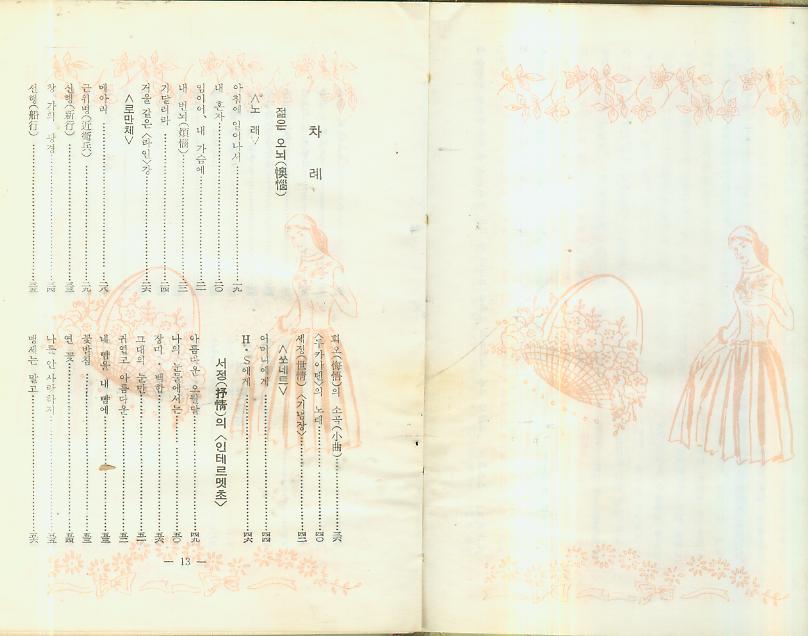 차 례
젊은 오뇌(懊惱)
<노 래>
아침에 일어나서 一九
내 혼자 二〇
임이여、내 가슴에 二一
내 번뇌(煩惱)
기다려라 二四
거울 같은 <라인>강 二六
<로만체>
메아리 二八
근위병(近衛兵) 二九
신행(新行)
창 가의 광경
선행(船行)
회오(悔悟)의 소곡(小曲) 三六
의 노래 四〇
세정(世情) <기념장> 四二
<쏘네트>
어머니에게 四四
H·S에게 四六
서정(抒情)의 <인테르멧초>
아름다운 오월달 四九
나의 눈물에서는 五〇
장미·백합
그대의 눈만 五一
귀엽고 아름다운 五二
네 뺨을 내 뺨에 五三
꽃받침 五三
연 꽃 五四
나를 안 사랑하지 五五
맹세는 말고 五六
— 13 —